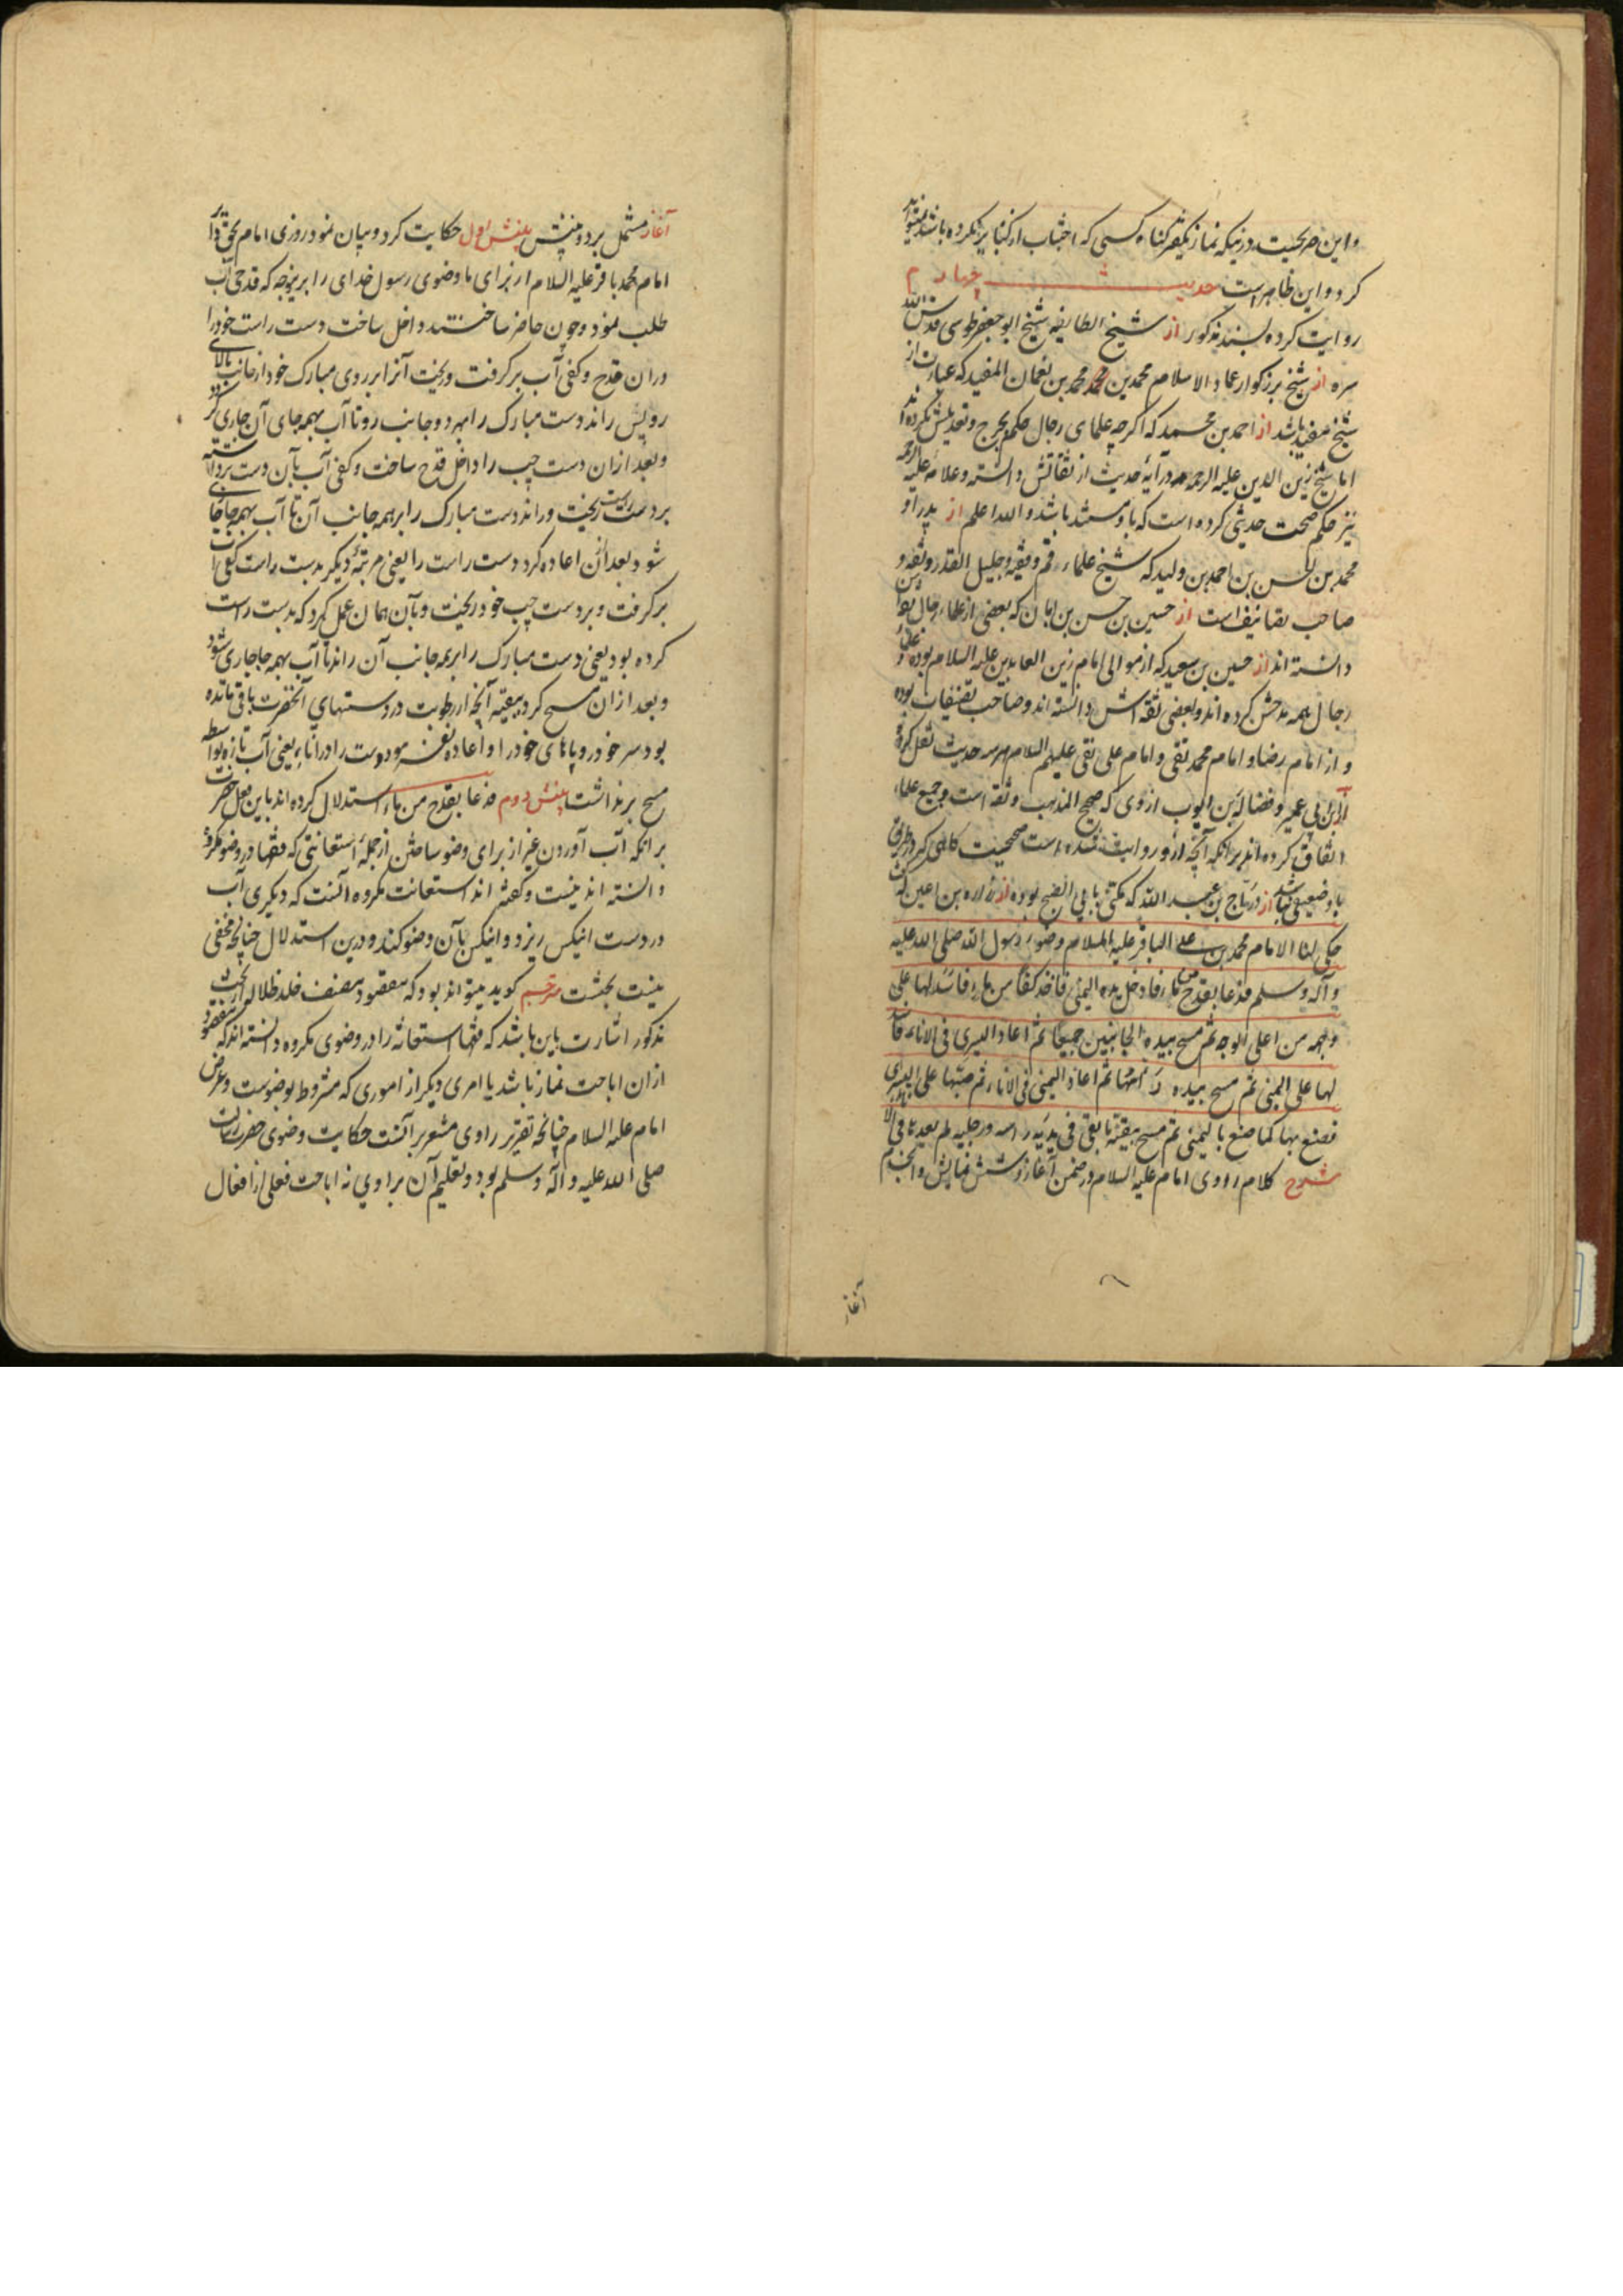 و این صریحیست در نیکه نماز یکفر کناه کسی که اجتناب از کبایر نکرده باشد میتواند
کرد و این ظاهر است حدیث چهارم
روایت کرده بسند مذکور از شیخ الطایفه شیخ ابو جعفر طوسی قدس الله
سره از شیخ بزرکوار عماد الاسلام محمد بن محمد بن نعمان المفید که عبارت از
شیخ مفید باشد از احمد بن محمد که اکرچه علمای رجال حکم بجرح و تعدیلش نکرده اند
اما شیخ زین الدین علیه الرحمه در آیهٔ حدیث از ثقاتش دانسته و علامه علیه الرحمه
نیز حکم صحت حدیثی کرده است که باو مستند باشد والله اعلم از پدر او
محمد بن الحسن بن احمد بن ولید که شیخ علماء قم و ثقیه و جلیل القدر و ثقه و
صاحب تصانیف است از حسین بن حسن بن ابان که بعضی از علماء رجال
دانسته اند از حسین بن سعید که از موالی امام زین العابدین علیه السلام بوده علماء
رجال همه مدحش کرده اند و بعضی ثقه اش دانسته اند و صاحب تصنیفات بوده
و از امام رضا و امام محمد تقی و امام علی نقی علیهم السلام هر سه حدیث نقل کرده
از ابن ابی عمیر و فضالة بن ایوب از وی که صحیح المذهب و ثقه است و جمیع علماء
اتفاق کرده اند بر انکه آنچه از و روایت شده است صحیحیت کاهی که در طریق
باو ضعیفی نباشد از دراج بن عبد الله که مکنی بابی الصبح بوده از زراره بن اعین که
حکی لنا الامام محمد بن علی الباقر علیه السلام وضوء رسول الله صلی الله علیه
و آله وسلم فدعا بقدح من ماء فادخل یده الیمنی فاخذ کفا من ماء فاسدلها علی
وجهه من اعلی الوجه ثم مسح بیده الجانبین جمیعا ثم اعاد الیسری فی الاناء فاسد
لها علی الیمنی ثم مسح بیده جوانبها ثم اعاد الیمنی فی الاناء ثم صبها علی الیسری
فصنع بها کما صنع بالیمنی ثم مسح ببقیة ما بقی فی یدیه راسه و رجلیه لم یعدها فی الاناء
شرح کلام راوی امام علیه السلام در ضمن آغاز و شش نمایش و انجام
آغاز
آغاز مشتمل بر دو بینش بینش اول حکایت کرد و بیان نمود روزی امام بحق
امام محمد باقر علیه السلام از برای ما وضوی رسول خدای را برینوجه که قدحی آب
طلب نمود و چون حاضر ساختند داخل ساخت دست راست خود را
در ان قدح و کفی آب بر کرفت و ریخت آنرا بر روی مبارک خود از جانب بالای
رویش و راند دست مبارک را بهر دو جانب رو تا آب بهمه جای آن جاری کردد
و بعد از ان دست چپ را داخل قدح ساخت و کفی آب بآن دست برداشته
بر دست راست ریخت و راند دست مبارک را بر همه جانب آن تا آب بهمه جا جاری
شود بعد از ان اعاده کرد دست راست را یعنی مرتبهٔ دیکر بدست راست کفی آب
بر کرفت و بر دست چپ خود ریخت و بآن همان عمل کرد که بدست راست
کرده بود یعنی دست مبارک را بر همه جانب آن راند تا آب بهمه جا جاری شود
و بعد از ان مسح کرد ببقیه آنچه از رطوبت در دستهای آنحضرت باقی مانده
بود سر خود و پاهای خود را و اعاده نفرمود دست را در اناء یعنی آب تازه بواسطه
مسح بر نداشت بینش دوم فدعا بقدح من ماء استدلال کرده اند باین فعل حضرت
بر انکه آب آوردن غیر از برای وضو ساختن از جملهٔ استعانتی که فقها در وضو مکروه
دانسته اند نیست و کفته اند استعانت مکروه آنست که دیکری آب
در دست اینکس ریزد و اینکس بآن وضو کند و درین استدلال چنانچه مخفی
نیست بحثست مترجم کوید میتواند بود که مقصود مصنف خلد ظلاله از بحث
مذکور اشارت باین باشد که فقها استعانه را در وضوی مکروه دانسته اند که مقصود
از ان اباحت نماز باشد یا امری دیکر از اموری که مشروط بوضوست و غرض
امام علیه السلام چنانچه تقریر راوی مشعر بر آنست حکایت وضوی حضرت رسالت
صلی الله علیه و آله وسلم بود و تعلیم آن براوی نه اباحت فعلی از افعال